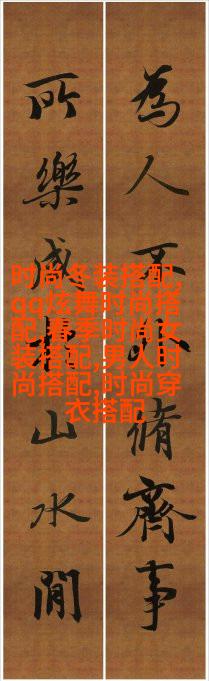 為人不脩齊事
所樂咸山水間
时尚冬装搭配,
qq炫舞时尚搭
配,春季时尚女
装搭配,男人时
尚搭配,时尚穿
衣搭配